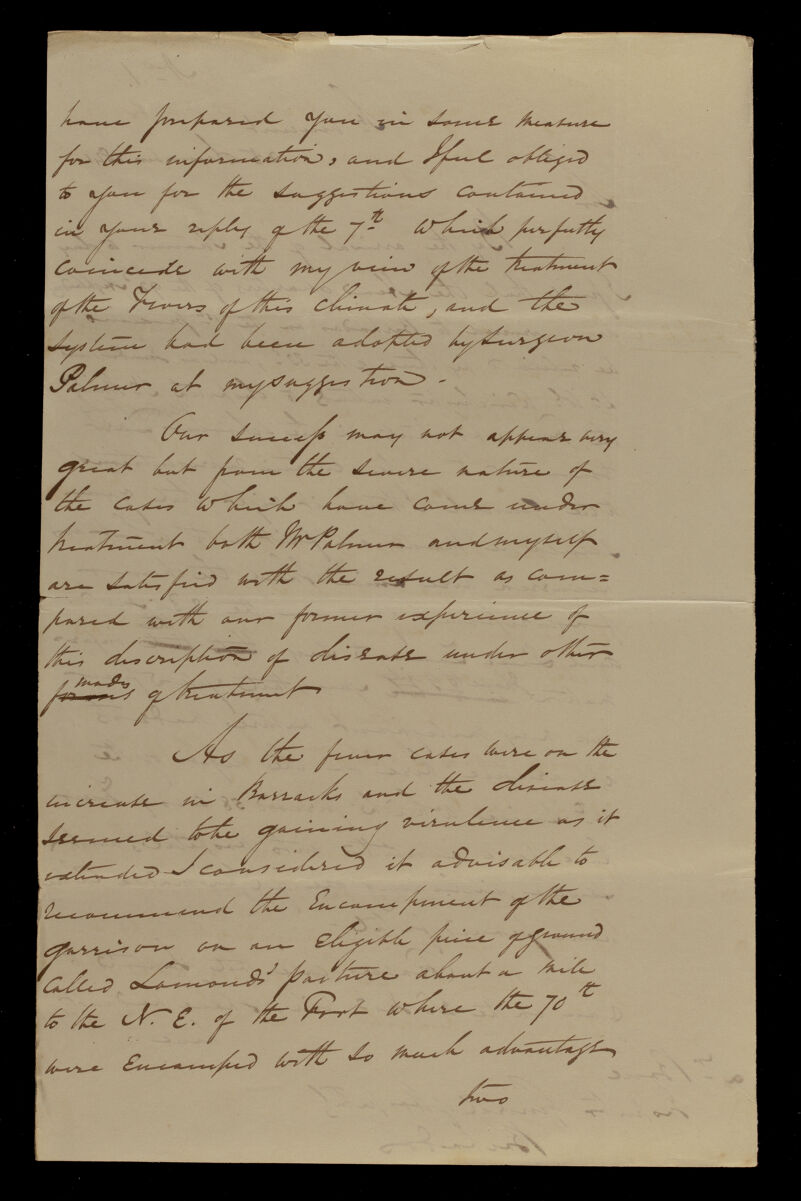 have prepared you in some measure
for this information, and I feel obliged
to you for the suggestions contained
in your reply of the 7th which perfectly
coincide with my view of the treatment
of the Fevers of this climate, and the
system had been adopted by Surgeon
Palmer at my suggestion.
Our success may not appear very
great but from the severe nature of
the cases which have come under
treatment both Mr Palmer and myself
are satisfied with the result as com=
pared with our former experience of
this description of disease under other
modes
forms of treatment
As the fever cases were on the
increase in Barracks and the disease
seemed to be gaining virulence as it
extended I considered it advisable to
recommend the Encampment of the
garrison on an eligible piece of ground
called Lamonds' pasture about a mile
to the N. E. of the Fort where the 70th
were Encamped with so much advantage
two